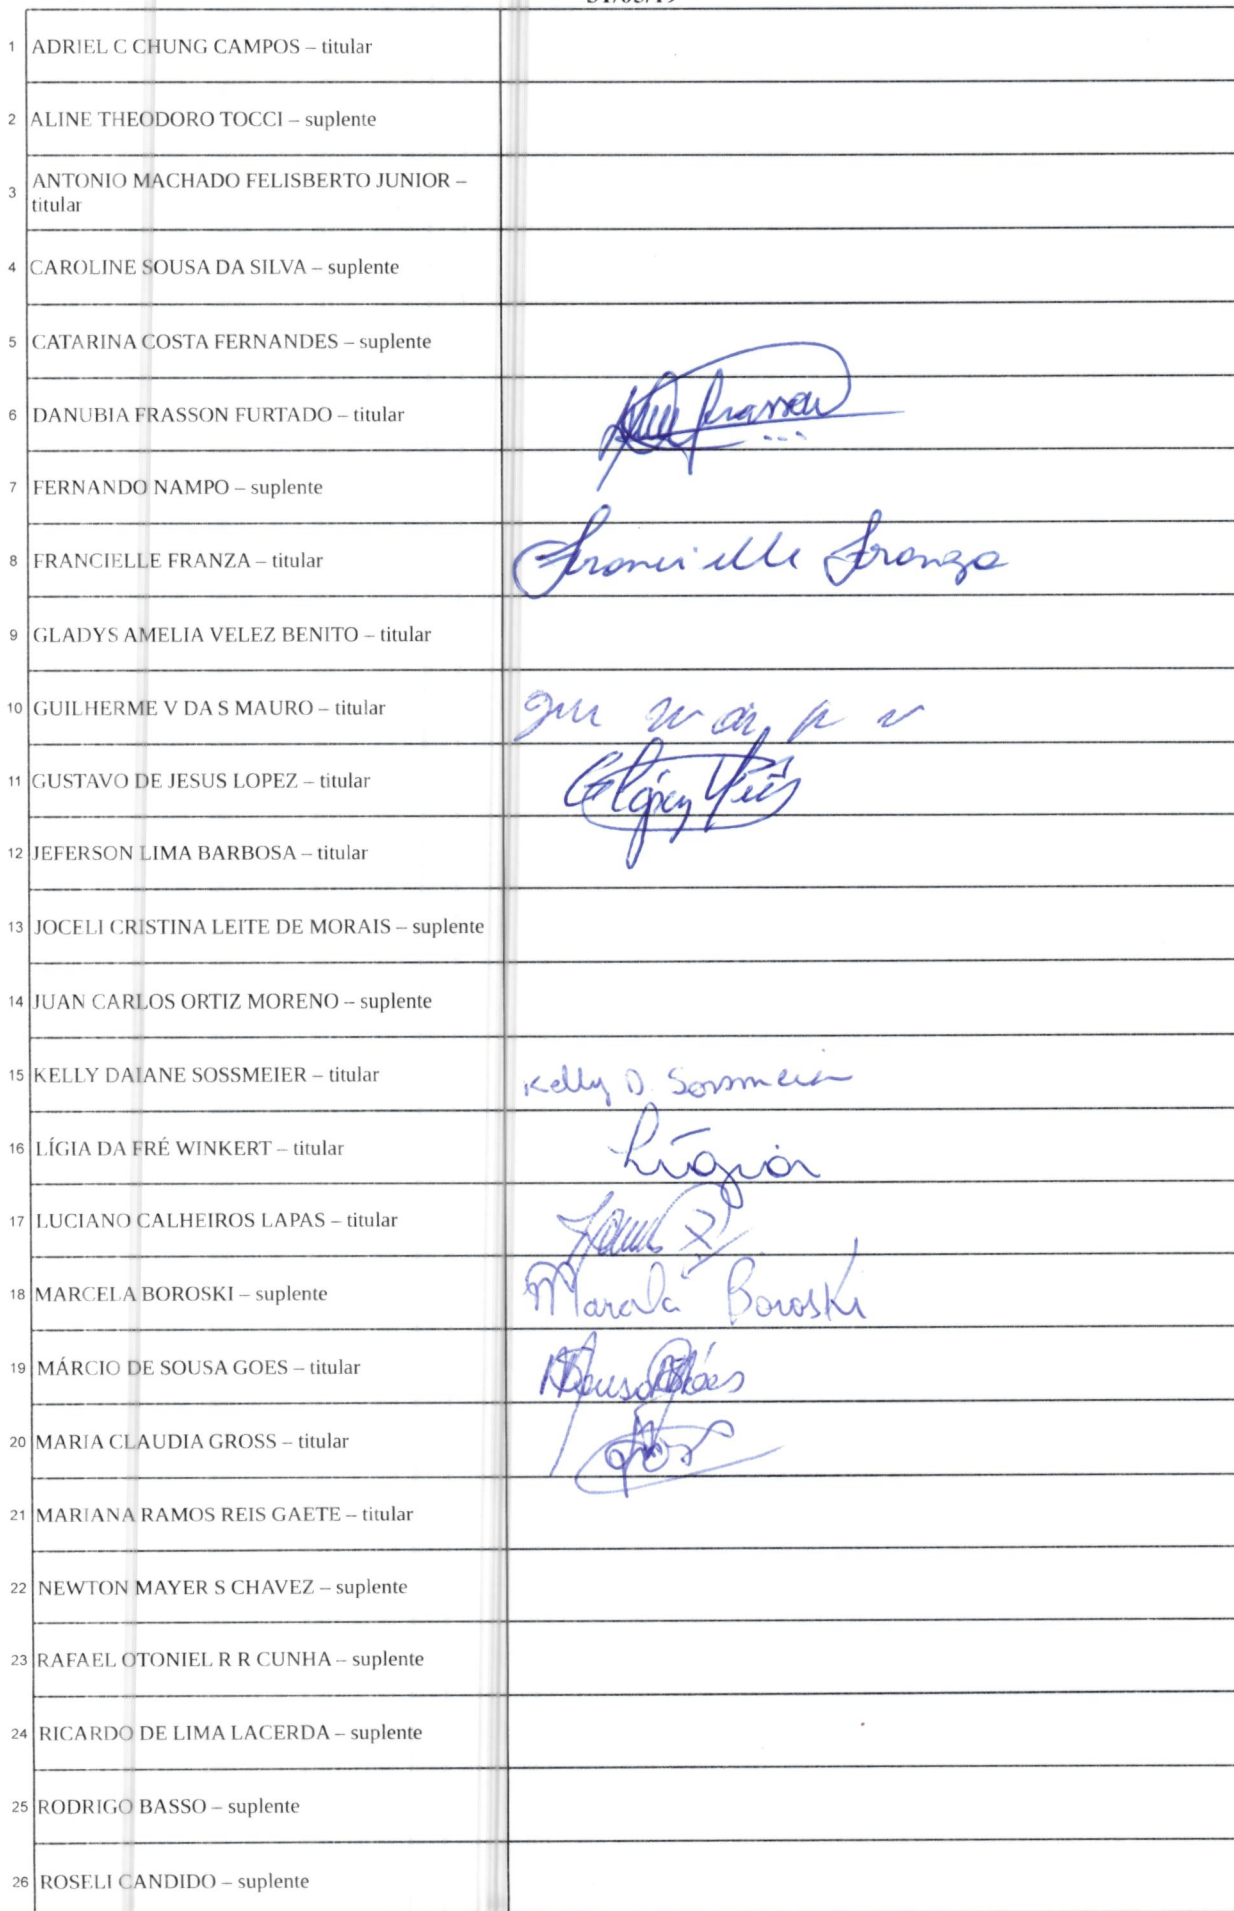 1 ADRIEL C CHUNG CAMPOS – titular
2 ALINE THEODORO TOCCI – suplente
3 ANTONIO MACHADO FELISBERTO JUNIOR –
titular
4 CAROLINE SOUSA DA SILVA – suplente
5 CATARINA COSTA FERNANDES – suplente
6 DANUBIA FRASSON FURTADO – titular
7 FERNANDO NAMPO – suplente
8 FRANCIELLE FRANZA – titular Francielle Franza
9 GLADYS AMELIA VELEZ BENITO – titular
10 GUILHERME V DA S MAURO – titular
11 GUSTAVO DE JESUS LOPEZ – titular
12 JEFERSON LIMA BARBOSA – titular
13 JOCELI CRISTINA LEITE DE MORAIS – suplente
14 JUAN CARLOS ORTIZ MORENO – suplente
15 KELLY DAIANE SOSSMEIER – titular Kelly D. Sossmeier
16 LÍGIA DA FRÉ WINKERT – titular Lígia
17 LUCIANO CALHEIROS LAPAS – titular
18 MARCELA BOROSKI – suplente Marcela Boroski
19 MÁRCIO DE SOUSA GOES – titular
20 MARIA CLAUDIA GROSS – titular
21 MARIANA RAMOS REIS GAETE – titular
22 NEWTON MAYER S CHAVEZ – suplente
23 RAFAEL OTONIEL R R CUNHA – suplente
24 RICARDO DE LIMA LACERDA – suplente
25 RODRIGO BASSO – suplente
26 ROSELI CANDIDO – suplente